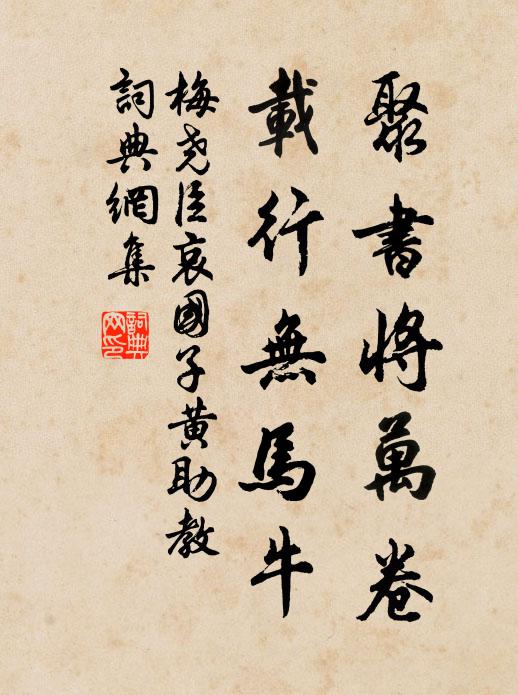 聚書將萬卷
載行無馬牛
梅尧臣哀國子黄助教
詞典網集
詞典文印